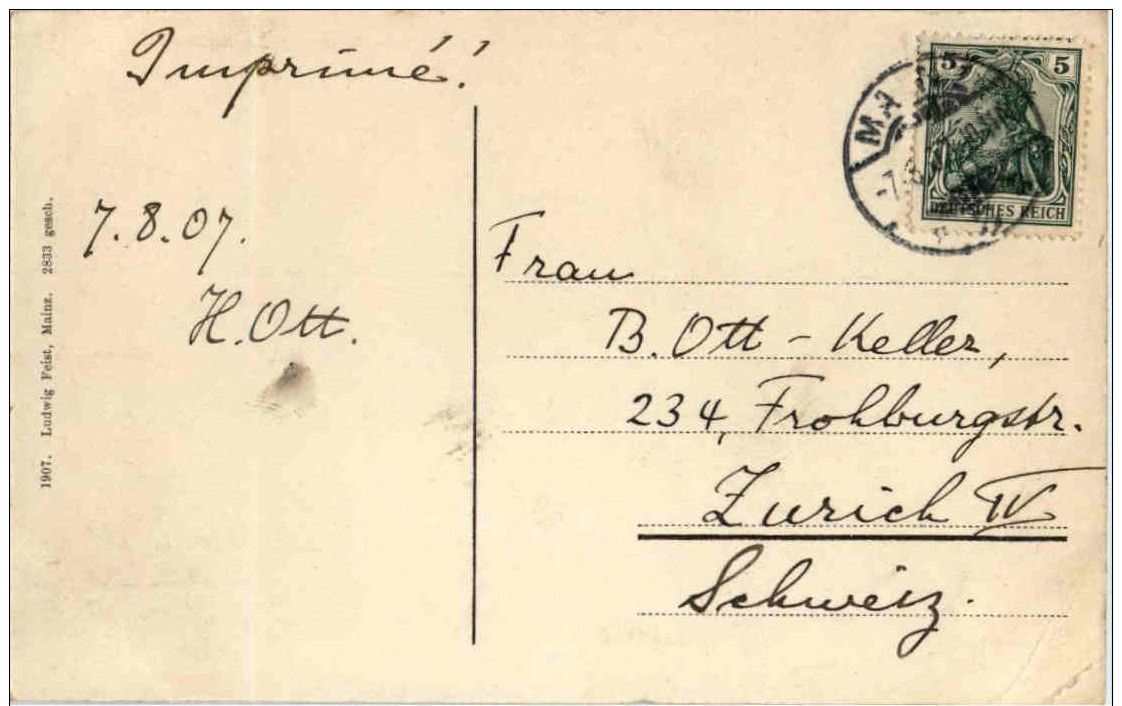 Imprimé!
7.8.07.
H. Ott.
1907. Ludwig Feist, Mainz. 2833 gesch.
5 5
DEUTSCHES REICH
Frau
B. Ott - Keller,
234, Frohburgstr.
Zurich IV
Schweiz.